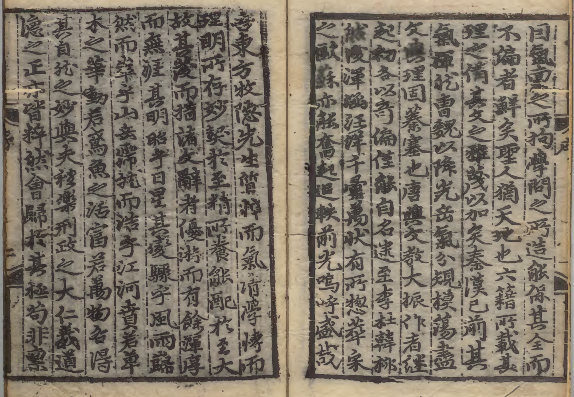 氣之所拘學問之所造能保其全而
不偏者鮮矣聖人猶天地也六籍所載其
理之備其文之雅蔑以加矣秦漢已前其
氣渾然曹魏以降光岳氣分規模蕩盡
文與理固蓁塞也唐興文教大振作者継
起初各以奇偏僅能自名逮至李杜韓柳
然後渾涵汪洋千彙萬狀有所惣萃宋
之歐蘇亦能奮起追軼前光嗚呼盛哉
吾東方牧隱先生質粹而氣清學博而
理明所存妙契於至精所養能配於至大
故其發而措諸文辭者優游而有餘渾厚
而無涯其明昭乎日星其變驟乎風雨巋
然而萃乎山岳霈然而浩乎江河賁若草
木之華動若鳶魚之活富若萬物各得
其自然之妙與夫禮樂刑政之大仁義道
德之正亦皆粹然會歸於其極苟非禀